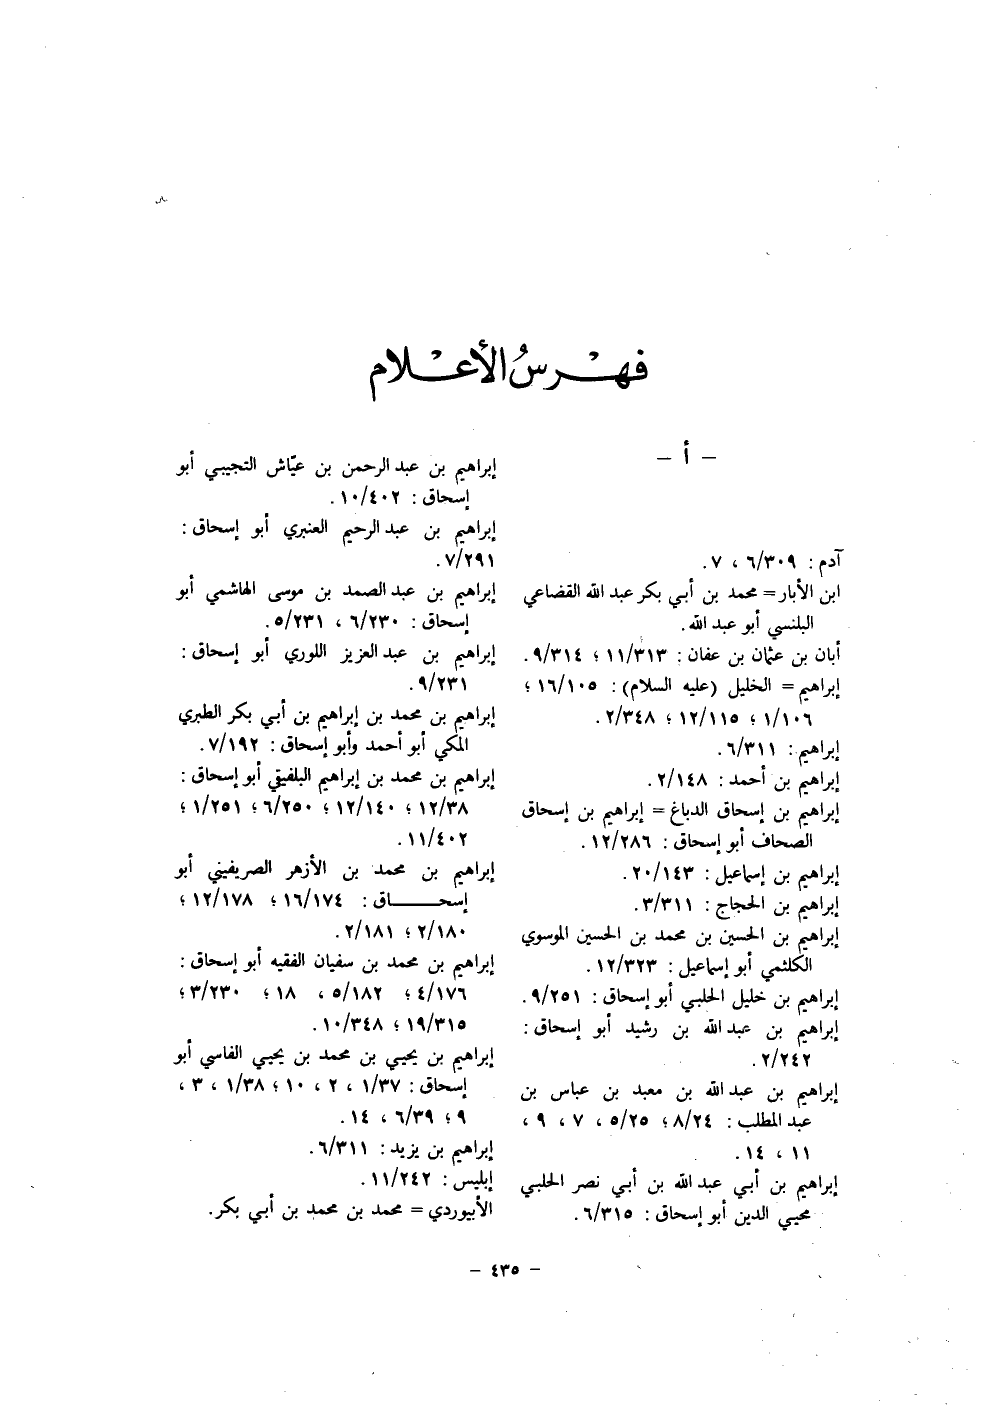 فهْرسُ الأعْلام
– أ –
آدم : ٦/٣٠٩ ، ٧.
ابن الأبار = محمد بن أبي بكر عبد الله القضاعي
البلنسي أبو عبد الله.
أبان بن عثمان بن عفان : ١١/٣١٣ ؛ ٩/٣١٤.
إبراهيم = الخليل (عليه السلام) : ١٦/١٠٥ ؛
١/١٠٦ ؛ ١٢/١١٥ ؛ ٢/٣٤٨.
إبراهيم : ٦/٣١١.
إبراهيم بن أحمد : ٢/١٤٨.
إبراهيم بن إسحاق الدباغ = إبراهيم بن إسحاق
الصحاف أبو إسحاق : ١٢/٢٨٦.
إبراهيم بن إسماعيل : ٢٠/١٤٣.
إبراهيم بن الحجاج : ٣/٣١١.
إبراهيم بن الحسين بن محمد بن الحسين الموسوي
الكلثمي أبو إسماعيل : ١٢/٣٢٣.
إبراهيم بن خليل الحلبي أبو إسحاق : ٩/٢٥١.
إبراهيم بن عبد الله بن رشيد أبو إسحاق :
٢/٢٤٢.
إبراهيم بن عبد الله بن معبد بن عباس بن
عبد المطلب : ٨/٢٤ ؛ ٥/٢٥ ، ٧ ، ٩ ،
١١ ، ١٤.
إبراهيم بن أبي عبد الله بن أبي نصر الحلبي
محيي الدين أبو إسحاق : ٦/٣١٥.
إبراهيم بن عبد الرحمن بن عيّاش التجيبي أبو
إسحاق : ١٠/٤٠٢.
إبراهيم بن عبد الرحيم العنبري أبو إسحاق :
٧/٢٩١.
إبراهيم بن عبد الصمد بن موسى الهاشمي أبو
إسحاق : ٦/٢٣٠ ، ٥/٢٣١.
إبراهيم بن عبد العزيز اللوري أبو إسحاق :
٩/٢٣١.
إبراهيم بن محمد بن إبراهيم بن أبي بكر الطبري
المكي أبو أحمد وأبو إسحاق : ٧/١٩٢.
إبراهيم بن محمد بن إبراهيم البلفيقي أبو إسحاق :
١٢/٣٨ ؛ ١٢/١٤٠ ؛ ٦/٢٥٠ ؛ ١/٢٥١ ؛
١١/٤٠٢.
إبراهيم بن محمد بن الأزهر الصريفيني أبو
إسحـــاق : ١٦/١٧٤ ؛ ١٢/١٧٨ ؛
٢/١٨٠ ؛ ٢/١٨١.
إبراهيم بن محمد بن سفيان الفقيه أبو إسحاق :
٤/١٧٦ ؛ ٥/١٨٢ ، ١٨ ؛ ٣/٢٣٠ ؛
١٩/٣١٥ ؛ ١٠/٣٤٨.
إبراهيم بن يحيي بن محمد بن يحيي الفاسي أبو
إسحاق : ١/٣٧ ، ٢ ، ١٠ ؛ ١/٣٨ ، ٣ ،
٩ ؛ ٦/٣٩ ، ١٤.
إبراهيم بن يزيد : ٦/٣١١.
إبليس : ١١/٢٤٢.
الأبيوردي = محمد بن محمد بن أبي بكر.
– ٤٣٥ –